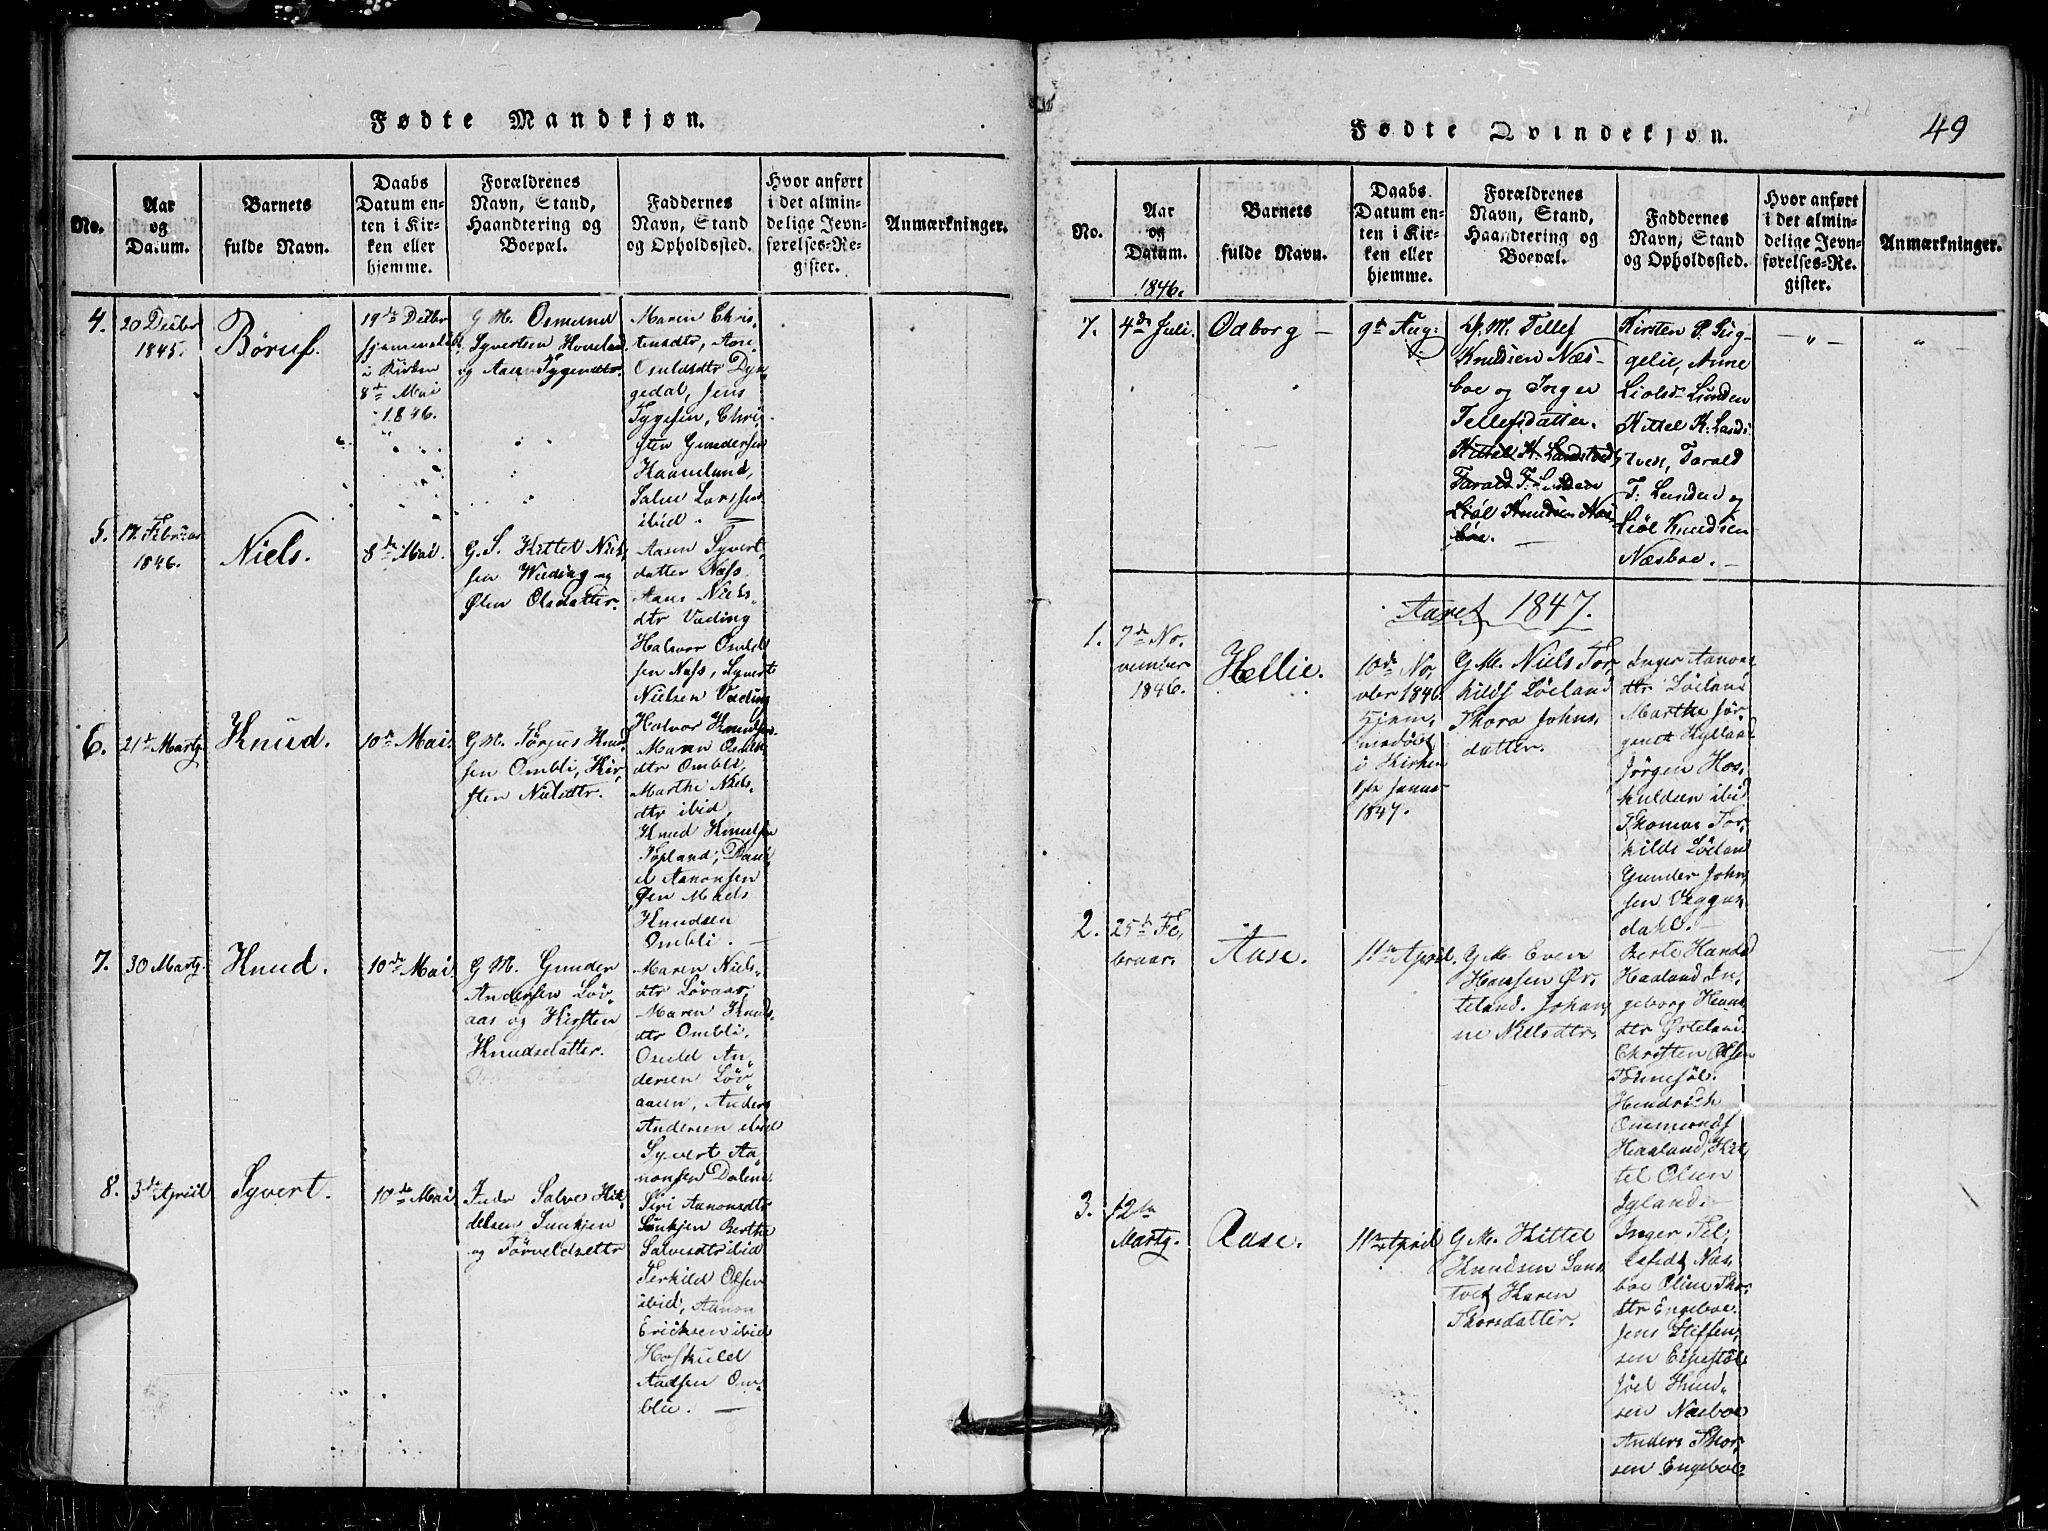 Fødte Mandkjøn.
No.
Aar
og
Datum.
Barnets
fulde Navn.
Daabs
Datum en-
ten i Kir-
ken eller
hjemme.
Forældrenes
Navn, Stand,
Haandtering og
Boepæl.
Faddernes
Navn, Stand
og Opholdssted.
Hvor anført
i det almin-
delige Jevn-
førelses-Re-
gister.
Anmærkninger.
4.
20 Decbr
1845.
19de Decbr
i Kirken
8de Mai
1846.
G. M. Osmund
Syvertsen
og Aasen Tygesdtr.
Maren Chris-
tensdtr, Aase
Osuldsdtr Dyn-
gedal, Jens
Tygesen, Chri-
sten Gundersen
Haaneland,
Salve Larssen
ibid. —
5.
17. Februar
1846.
Niels.
8de Mai.
G. S. Kittel Niel-
sen Weding og
Olsdatter.
Aasen Syvert
datter Næss
Niels-
dtr Vading
Halvor Osmld
sen Næss, Syvert
Nielsen Vading
6.
21de Martz.
Knud.
10de Mai.
G. M. Tørjus Knud
sen Ombli, Kir-
sten Nielsdtr.
Halvor Knudsen
Maren Osulds
dtr Ombli,
Marthe Niels-
dtr ibid,
Knud Knudsen
Topland, Dani
el Aanonsen
Øen Mads
Knudsen
Ombli. —
7.
30 Martz.
Knud.
10de Mai.
G. M. Gunder
Andersen Løv-
aas og Kirsten
Knudsdatter.
Maren Niels-
dtr Løvaas
Maren Knuds-
dtr Ombli,
Osuld An-
dersen Løv-
aasen, Anders
Andersen ibid
8.
3de April
Syvert.
10de Mai
Indr Salve Kit-
delsen Sunkjen
og
Syvert Aa-
nonsen Dalene
Siri Aanonsdtr
Sunkjen Berthe
Salvesdtr ibid
Terkild Olsen
ibid, Aanon
Ericksen ibid
Hoskuld
Aadsen Om-
blie. —
Fødte Qvindekjøn.
49
No.
Aar
og
Datum.
1846.
Barnets
fulde Navn.
Daabs
Datum en-
ten i Kir-
ken eller
hjemme.
Forældrenes
Navn, Stand,
Haandtering og
Boepæl.
Faddernes
Navn, Stand
og Opholdssted.
Hvor anført
i det almin-
delige Jevn-
førelses-Re-
gister.
Anmærkninger.
7.
4de Juli
Odborg —
9de Aug:
G. M. Tellef
Knudsen Næs-
boe og Inger
Tellefsdatter.
Kittel K. Landstved
Tarald T. Lunden
Liøl Knudsen Næs-
boe.
Kirsten P. Lug-
gelie, Anne
Liolsdr Lunden
Kittel K. Lands
tved, Tarald
T. Lunden og
Liøl Knudsen
Næsboe. —
— " —
"
Aaret 1847.
1.
7de No-
vember
1846.
Hellie.
10de No-
vbr 1846
Hjem-
medøbt
i Kirken
Janua
1847.
G. M. Niels Tor-
kilds Løeland
Thora Johns-
datter.
Inger Aanons
dtr Løeland
Marthe Jør-
gens Hylland
Jørgen Hos-
kuldsen ibid
Thomas Tor-
kilds Løeland
Gunder John-
sen Veggus-
dahl. —
2.
25de Fe-
bruar.
Aase.
11te April.
G. M. Even
Hansen Ør-
teland. Johan-
ne Nielsdtr.
Berte Hansd
Haaland In-
geborg Hans
dtr Ørteland
Christen Olsen
Hendrick
Osmunds
Haaland, Kit-
tel Olsen
Igland. —
3.
12te
Martz.
Aase.
11te April
G. M. Kittel
Knudsen Lans
tved Karen
Thorsdatter.
Inger Tel-
lefsdt Næs-
boe Oline Thor-
dtr Engeboe.
Jens Steffen-
sen Espestøl
Jøel Knud-
sen Næsboe
Anders Thor-
sen Engeboe